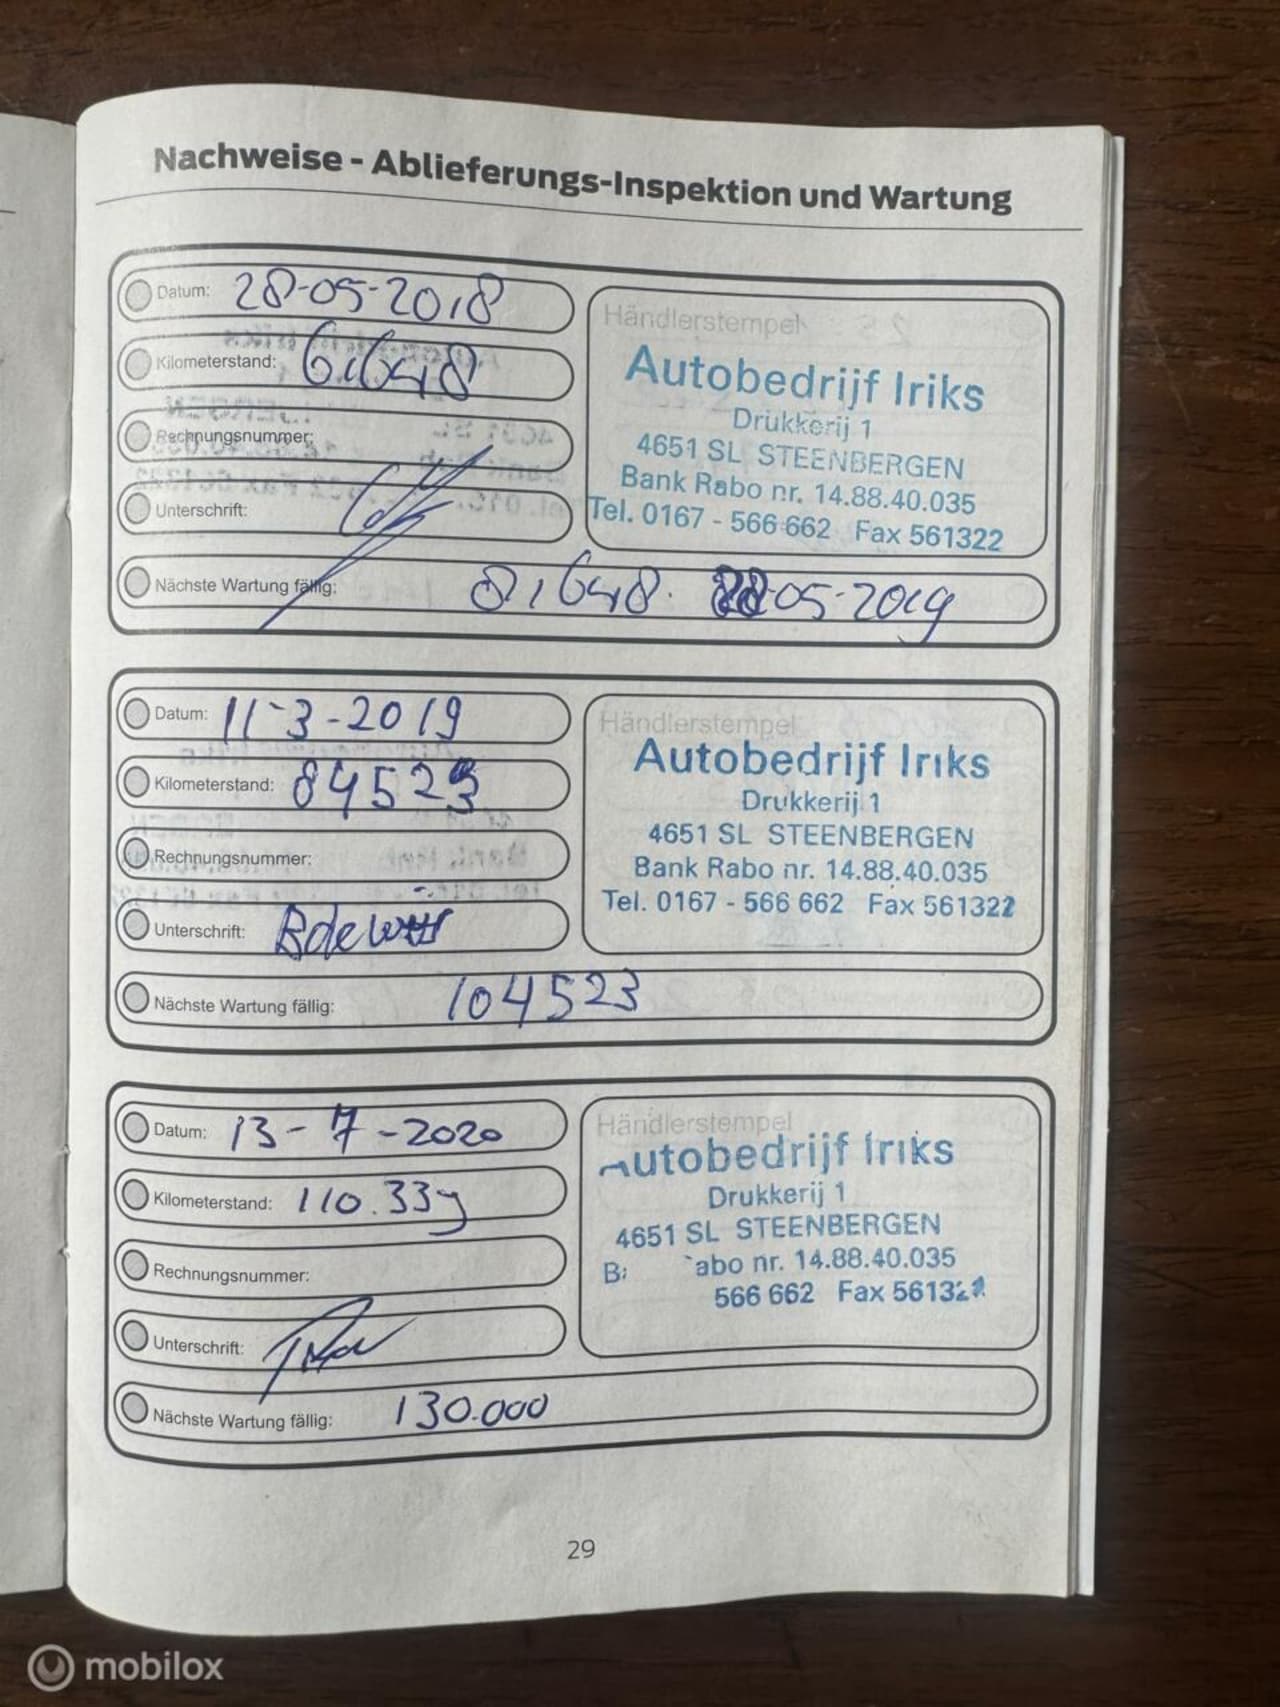 Nachweise - Ablieferungs-Inspektion und Wartung
Datum: 28-05-2018
Kilometerstand: 61648
Rechnungsnummer:
Unterschrift:
Nächste Wartung fällig: 81648. 28-05-2019
Händlerstempel
Autobedrijf Iriks
Drukkerij 1
4651 SL STEENBERGEN
Bank Rabo nr. 14.88.40.035
Tel. 0167 - 566 662 Fax 561322
Datum: 11-3-2019
Kilometerstand: 84523
Rechnungsnummer:
Unterschrift:
Nächste Wartung fällig: 104523
Händlerstempel
Autobedrijf Iriks
Drukkerij 1
4651 SL STEENBERGEN
Bank Rabo nr. 14.88.40.035
Tel. 0167 - 566 662 Fax 561322
Datum: 13-7-2020
Kilometerstand: 110.339
Rechnungsnummer:
Unterschrift:
Nächste Wartung fällig: 130.000
Händlerstempel
utobedrijf Iriks
Drukkerij 1
4651 SL STEENBERGEN
B abo nr. 14.88.40.035
566 662 Fax 561322
29
mobilox